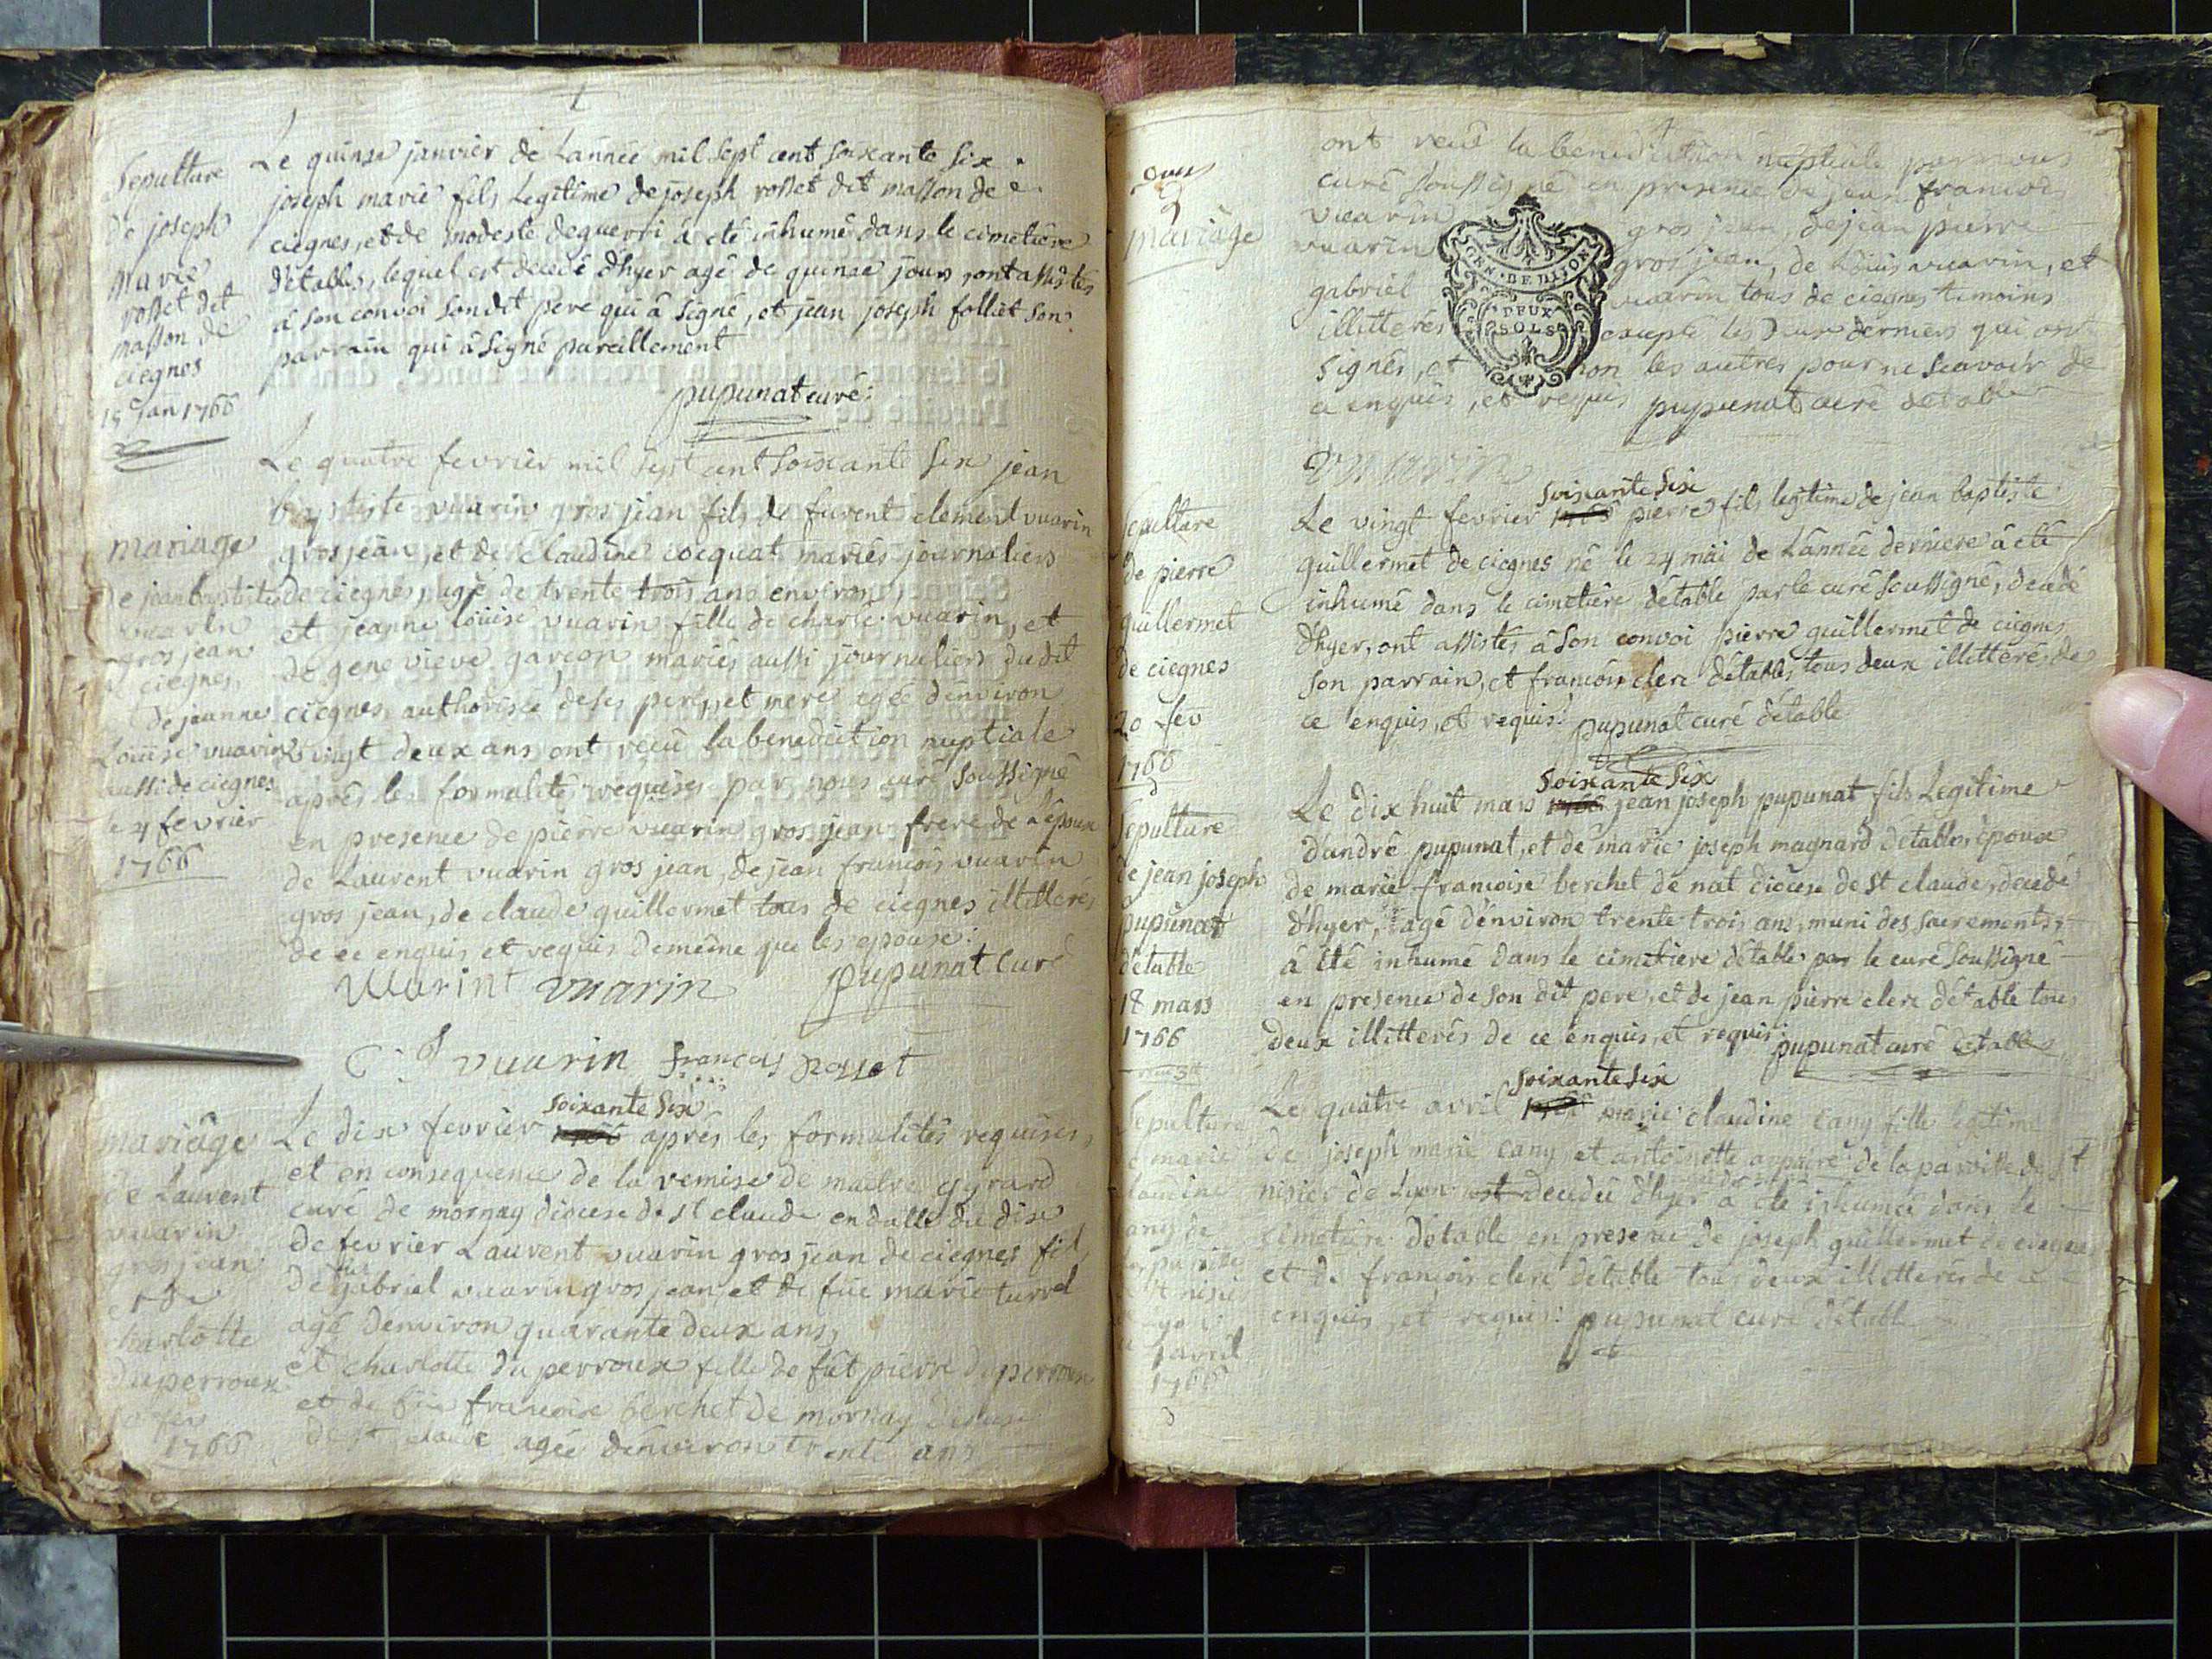 Sepulture
de joseph
marie
rosset dit
masson de
ciegnes
15 Jan 1766
Le quinse janvier de L'année mil sept cent soixante six
joseph marie fils Legitime de joseph rosset dit masson de
ciegnes, et de modeste deguerri à été inhumé dans le cimetiere
détables, lequel est decedé d'hyer agé de quinse jours, ont assistés
à son convoi son dit pere qui à signé, et jean joseph folliet son
parrain qui à signé pareillement
pupunat curé
mariage
de jean baptiste
vuarin
gros jean
de ciegnes,
de jeanne
Louise vuarin
aussi de ciegnes
le 4 fevrier
1766
Le quatre fevrier mil sept cent soixante six jean
baptiste vuarin gros jean fils de furent clement vuarin
gros jean, et de claudine cocquat mariés journaliers
de ciegnes, agé de trente trois ans environ,
et jeanne loüise vuarin fille de charle vuarin, et
de genevieve garçon mariés aussi journaliers dudit
ciegnes authorisée de ses pere, et mere agée d'environ
vingt deux ans ont recu la benediction nuptiale
aprés les formalité requises par nous curé soussigné
en presence de pierre vuarin gros jean frere de L'epoux
de Laurent vuarin gros jean, de jean francois vuarin
gros jean, de claude guillermet tous de ciegnes illitterés
de ce enquis et requis de meme que les epouse:
Uuarint vuarin pupunat Curé
vuarin francois rosset
mariage
de Laurent
vuarin
gros jean
et de
charlotte
duperroux
10 fev
1766
soixante six
Le dix fevrier 1766 aprés les formalités requises,
et en consequence de la remise de maitre gyrard
curé de mornay diocese de st claude en datte du dix
de fevrier Laurent vuarin gros jean de ciegnes fils
de fut gabriel vuarin gros jean, et de füe marie turrel
agé denviron quarante deux ans,
et charlotte du perroux fille de fut pierre du perroux
et de füe francoise berchet de mornay diocese
de st claude agée d'environ trente ans
mariage
ont recu la benediction nuptiale par nous
curé soussigné en presence de jean francois
vuarin gros jean, de jean pierre
vuarin gros jean, de Loüis vuarin, et
gabriel vuarin tous de ciegnes temoins
illitterés excepté les deux derniers qui ont
signés, et non les autres pour ne scavoir de
ce enquis, et requis pupunat curé détable
GEN·DE DIJON
DEUX
SOLS
vuarin
Sepulture
de pierre
guillermet
de ciegnes
20 fev
1766
soixante six
Le vingt fevrier 1766 pierre fils legitime de jean baptiste
guillermet de ciegnes né le 24 mai de L'année derniere à été
inhumé dans le cimetière détable par le curé soussigné, decedé
d'hyer, ont assistés à son convoi pierre guillermet de ciegnes
son parrain, et francois clerc détables, tous deux illitterés de
ce enquis, et requis: pupunat curé détable
Sepulture
de jean joseph
pupunat
détable
18 mars
1766
soixante six
Le dix huit mars 1766 jean joseph pupunat fils Legitime
d'andré pupunat, et de marie joseph magnard détables, époux
de marie francoise berchet de nat diocese de st claude, decedé
d'hyer, agé d'environ trente trois ans, muni des sacrements,
à été inhumé dans le cimetiere détable par le curé soussigné
en presence de son dit pere, et de jean pierre clerc détable tous
deux illitterés de ce enquis, et requis pupunat curé détables
Sepulture
de marie
claudine
cany de
la paroisse
4 avril
1766
soixante six
Le quatre avril 1766 marie claudine cany fille legitime
de joseph marie cany et antoinette de la paroisse de st
nisier de Lyon est decedée d'hyer à été inhumée dans le
cimetiere détable en presence de joseph guillermet de ciegnes
et de françois clerc détable tous deux illitterés de ce
enquis, et requis: pupunat curé détable